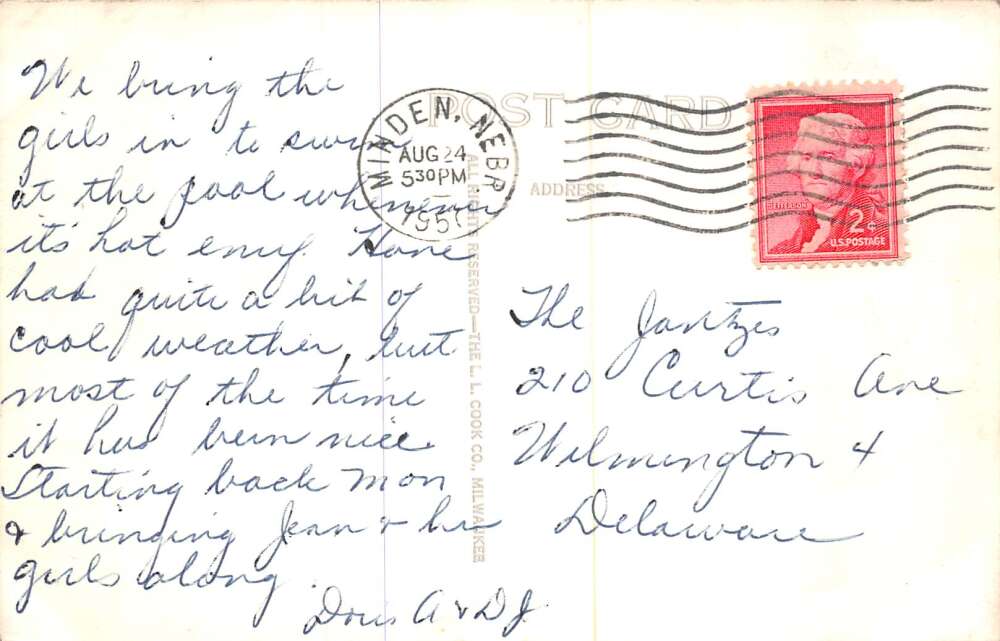 We bring the
girls in to swim
at the pool whenever
it's hot enuf. Have
had quite a bit of
cool weather, but
most of the time
it has been nice.
Starting back Mon
& bringing Jean & her
girls along.
Doris A & D J.
POST CARD
ADDRESS
MINDEN, NEBR
AUG 24
530 PM
195
JEFFERSON
2¢
U.S. POSTAGE
ALL RIGHTS RESERVED—THE L. L. COOK CO., MILWAUKEE
The Jantzes
210 Curtis Ave
Wilmington 4
Delaware